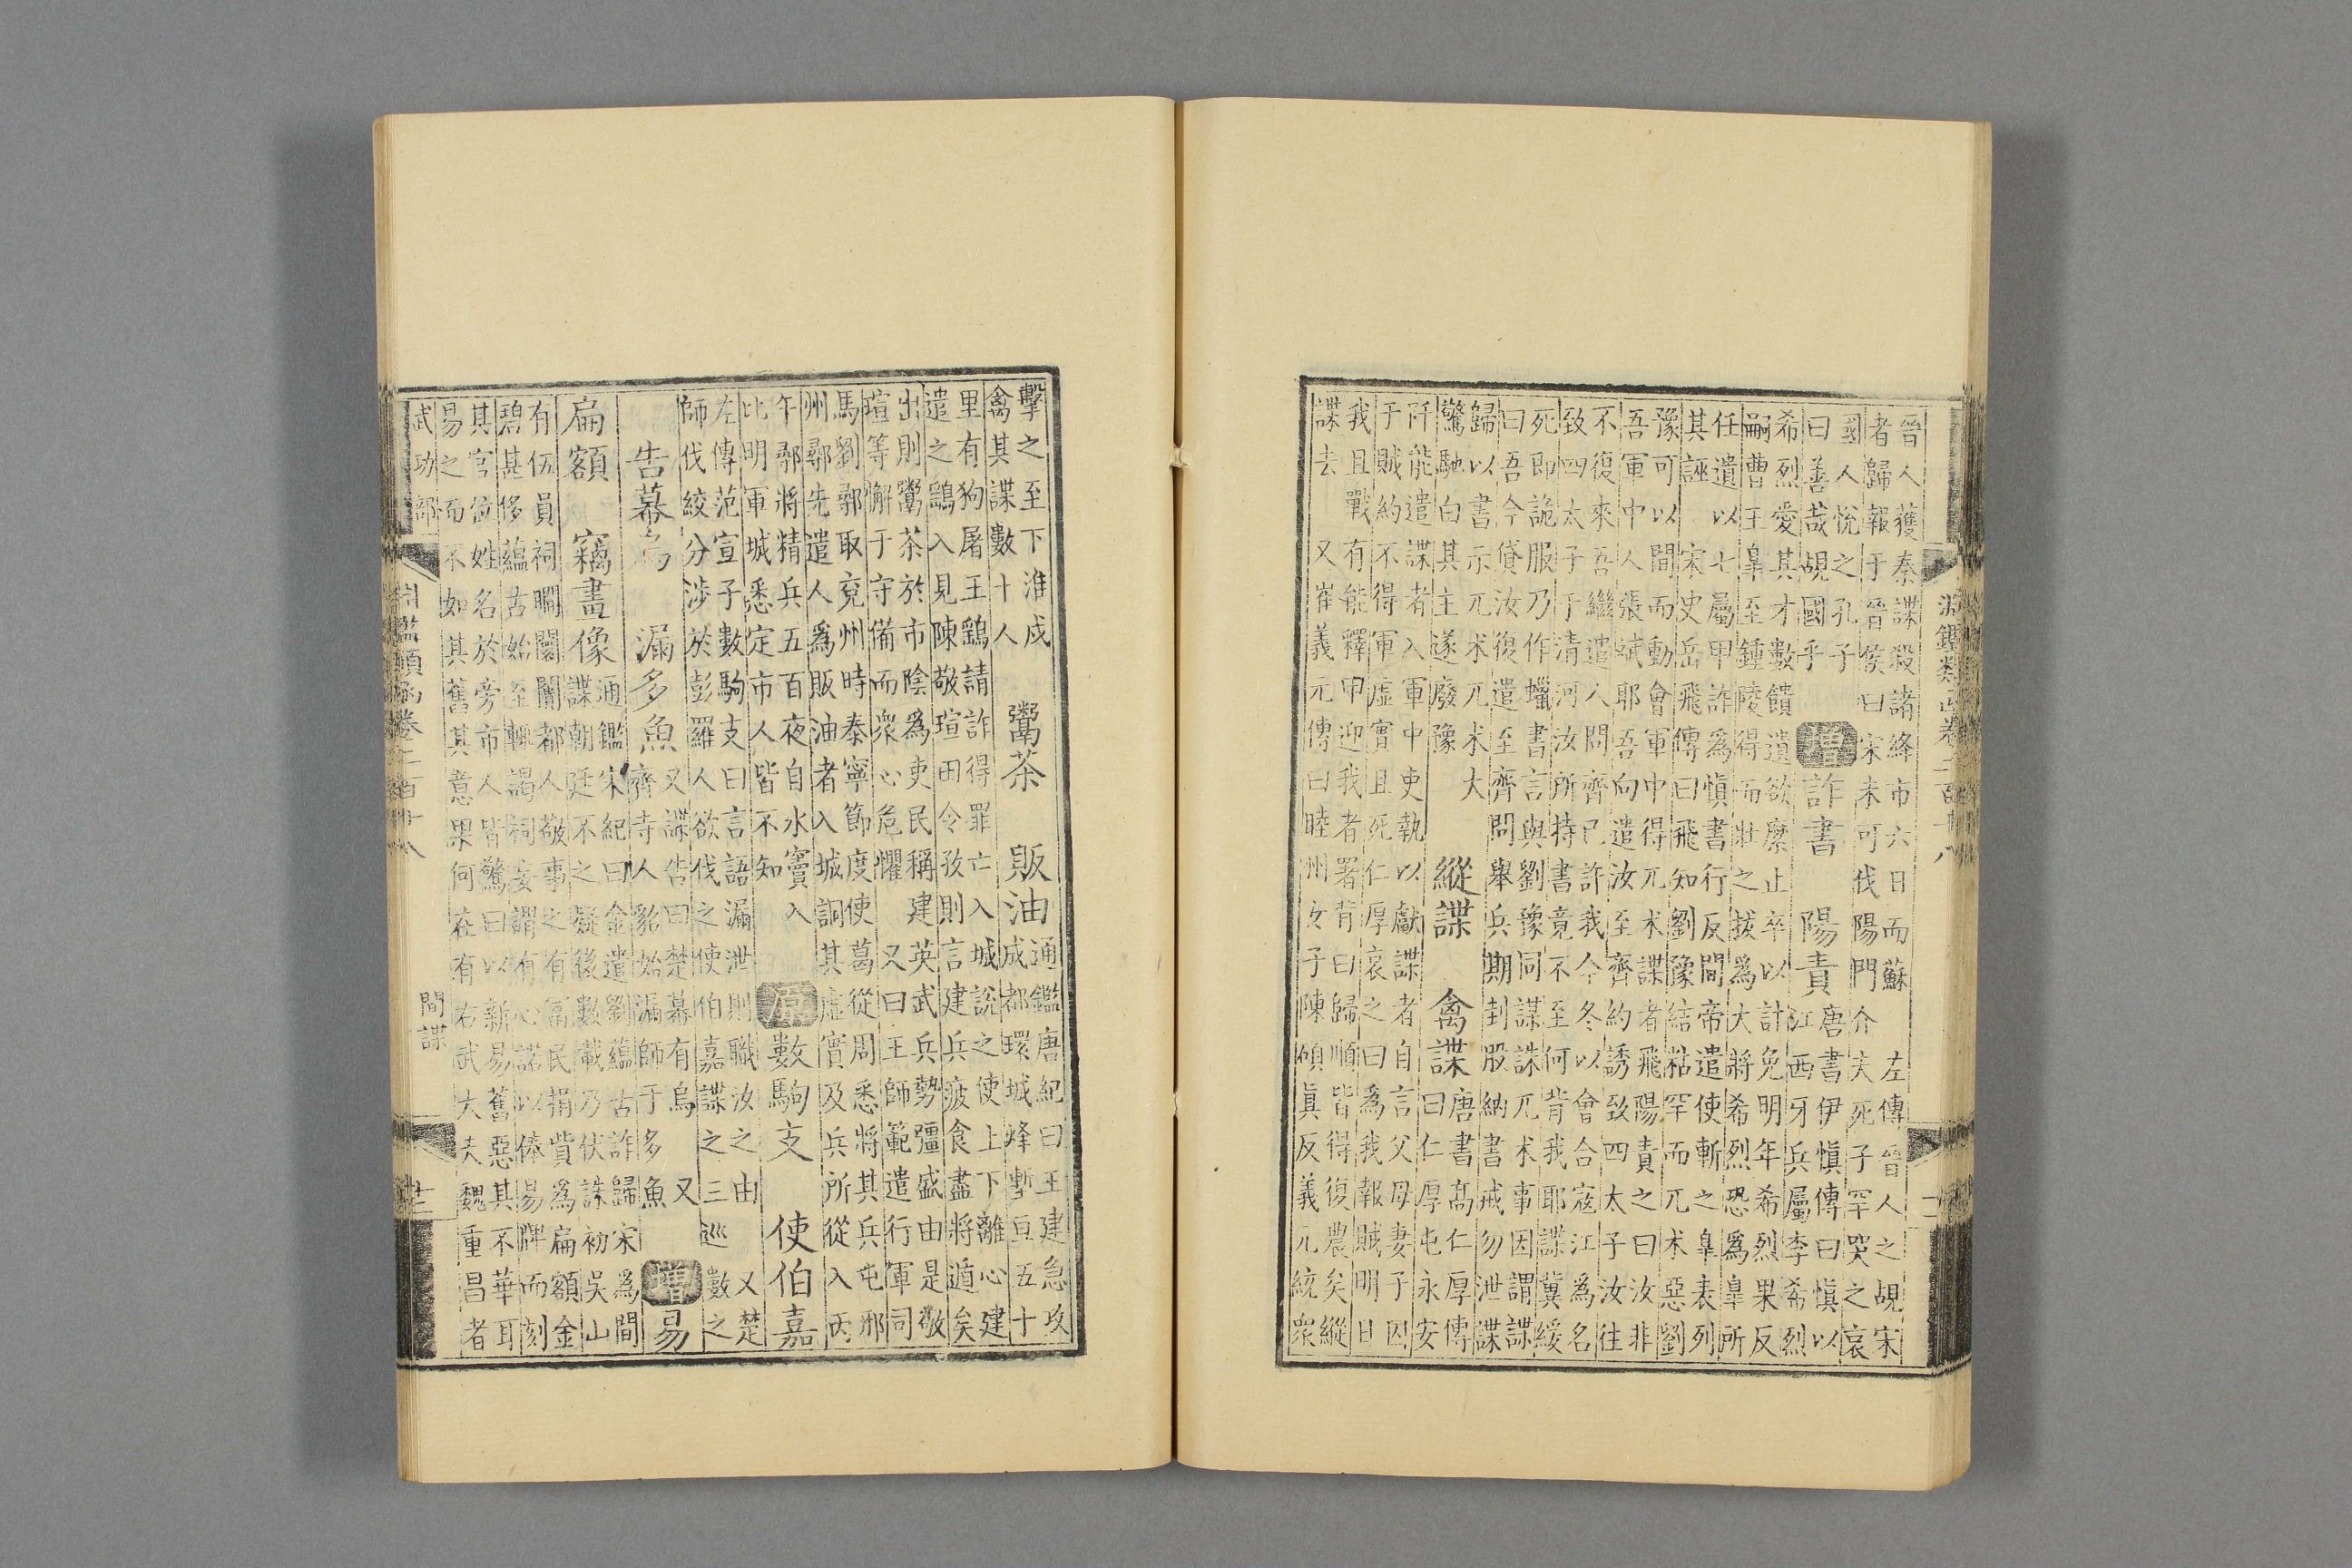 淵鑑類函卷二百十八
晉人獲秦諜殺諸絳市六日而蘇 左傳晉人之覘宋
者歸報于晉侯曰宋未可伐陽門介夫死子罕哭之哀
國人悅之孔子
曰善哉覘國乎
增 詐書 陽責
唐書伊慎傳曰慎以
江西牙兵屬李希烈
希烈愛其才數饋遺欲縻止卒以計免明年希烈果反
嗣曹王皋至鍾陵得而壯之拔為大將希烈恐為皋所
任遺以七屬甲詐為慎書行反間帝遣使斬之皋表列
其誣 宋史岳飛傳曰飛知劉豫結粘罕而兀术惡劉
豫可以間而動會軍中得兀术諜者飛陽責之曰汝非
吾軍中人張斌耶吾向遣汝至齊約誘致四太子汝往
不復來吾繼遣人問齊已許我今冬以會合寇江為名
致四太子于清河汝所持書竟不至何背我耶諜冀緩
死即詭服乃作蠟書言與劉豫同謀誅兀术事因謂諜
曰吾今貸汝復遣至齊問舉兵期刲股納書戒勿泄諜
歸以書示兀术兀术大
驚馳白其主遂廢豫
縱諜 禽諜
唐書高仁厚傳
曰仁厚屯永安
阡能遣諜者入軍中吏執以獻諜者自言父母妻子囚
于賊約不得軍虛實且死仁厚哀之曰為我報賊明日
我且戰有能釋甲迎我者署背曰歸順皆得復農矣縱
諜去 又崔義元傳曰睦州女子陳碩真反義元統眾
擊之至下淮戍
禽其諜數十人
鬻茶 販油
通鑑唐紀曰王建急攻
成都環城烽塹亘五十
里有狗屠王鷂請詐得罪亡入城說之使上下離心建
遣之鷂入見陳敬瑄田令孜則言建兵疲食盡將遁矣
出則鬻茶於市陰為吏民稱建英武兵勢彊盛由是敬
瑄等懈于守備而眾心危懼 又曰王師範遣行軍司
馬劉鄩取兗州時泰寧節度使葛從周悉將其兵屯邢
州鄩先遣人為販油者入城詗其虛實及兵所從入丙
午鄩將精兵五百夜自水竇入
比明軍城悉定市人皆不知
原 數駒支 使伯嘉
左傳范宣子數駒支曰言語漏泄則職汝之由 又楚
師伐絞分涉於彭羅人欲伐之使伯嘉諜之三巡數之
告幕烏 漏多魚
又諜告曰楚幕有烏 又
齊寺人貂始漏師于多魚
增 易
扁額 竊畫像
通鑑宋紀曰金遣劉蘊古詐歸宋為間
諜朝廷不之疑後數載乃伏誅初吳山
有伍員祠瞷闤闠都人敬事之有富民捐貲為扁額金
碧甚侈蘊古始至輒謁祠妄謂有心諾以俸易牌而刻
其官位姓名於旁市人皆驚曰以新易舊惡其不華耳
易之而不如其舊其意果何在有右武大夫魏重昌者
武功部
淵鑑類函卷二百十八
間諜